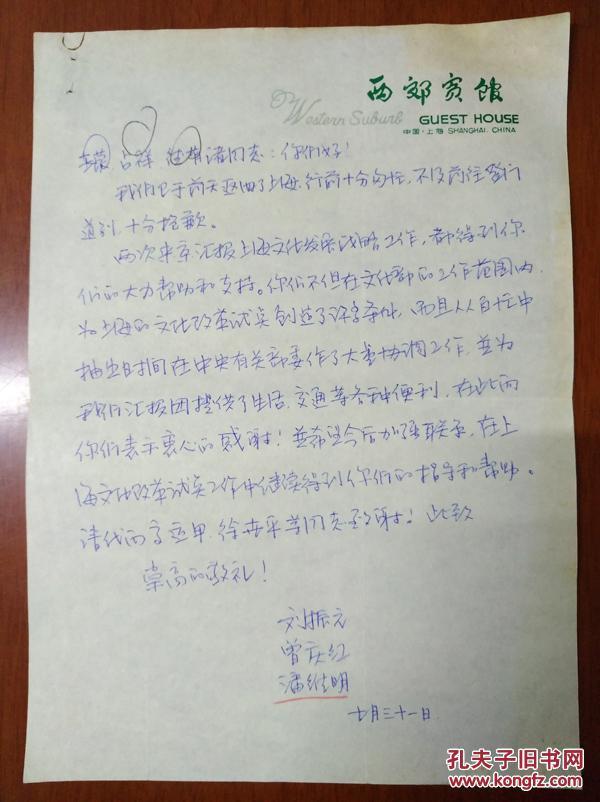 西郊宾馆
Western Suburb GUEST HOUSE
中国·上海 SHANGHAI. CHINA
英蓉、占祥、继英诸同志：你们好！
我们已于前天返回了上海，行前十分匆忙，不及前往登门
道别，十分抱歉。
两次来京汇报上海文化发展战略工作，都得到你
们的大力帮助和支持。你们不但在文化部的工作范围内
为上海的文化改革试实创造了许多条件，而且从百忙中
抽出时间在中央有关部委作了大量协调工作，并为
我们汇报团提供了生活、交通等各种便利，在此向
你们表示衷心的感谢！并希望今后加强联系，在上
海文化改革试实工作中继续得到你们的指导和帮助。
请代向高亚甲、徐世平等同志致谢！此致
崇高的敬礼！
刘振元
曾庆红
潘维明
七月三十一日
孔夫子旧书网
www.kongfz.com